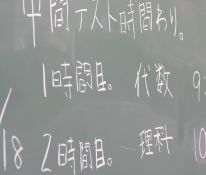 中間テスト時間わり。
1時間目。 代数 9:
/18 2時間目。 理科 10